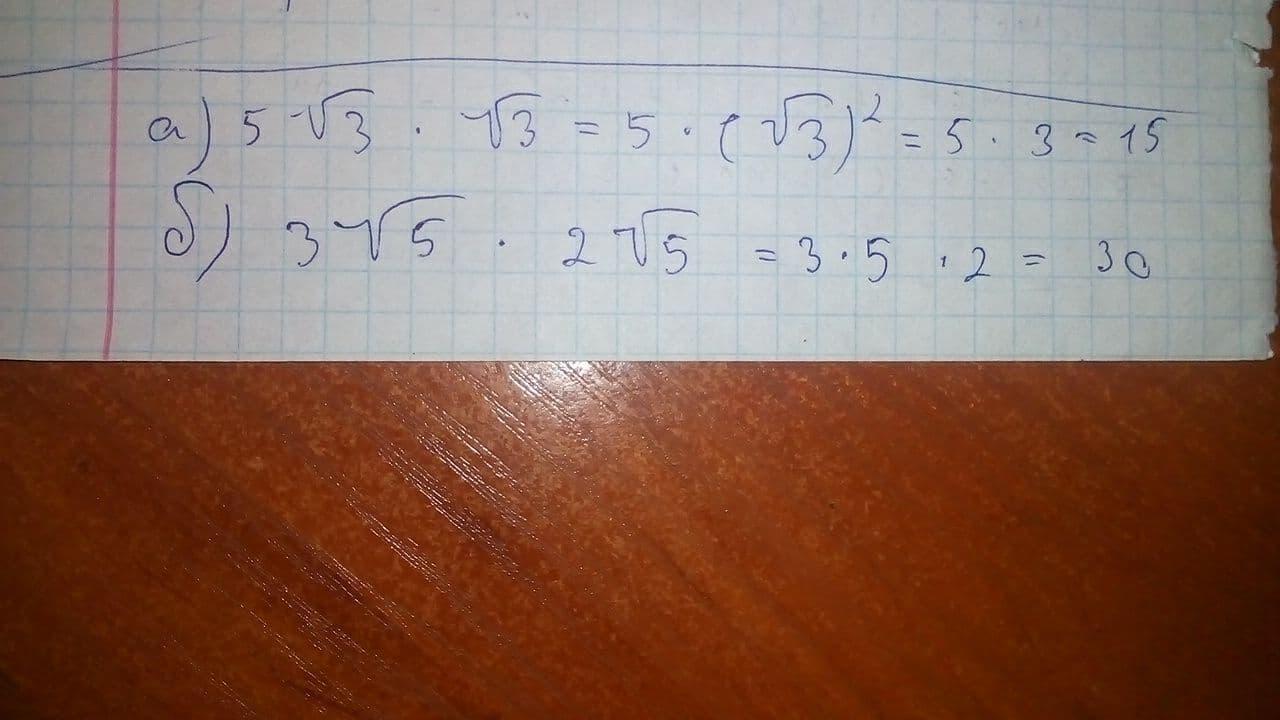 а) 5 √3 · √3 = 5 · (√3)² = 5 · 3 = 15
б) 3√5 · 2√5 = 3 · 5 · 2 = 30